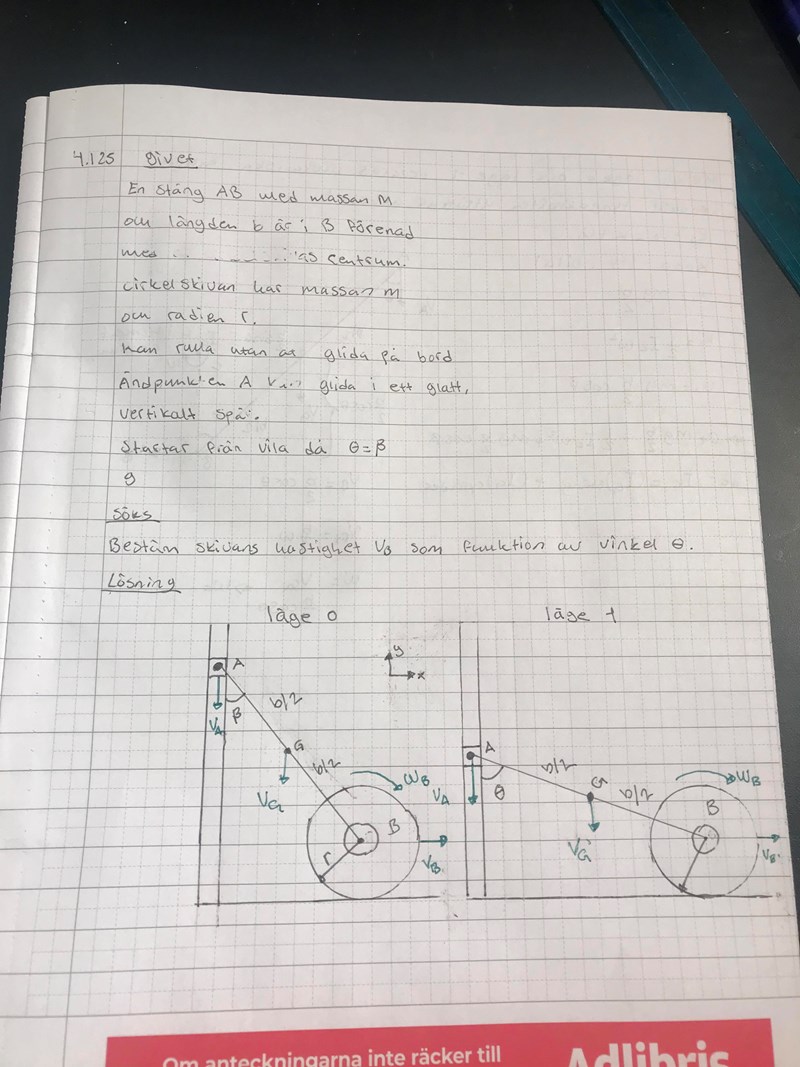 4.125 Givet
En stång AB med massan M
och längden b är i B förenad
med centrum.
cirkelskivan har massan m
och radien r.
kan rulla utan at glida på bord
Ändpunkten A glida i ett glatt,
vertikalt spår.
Startar från vila då θ=β
g
Söks
Bestäm skivans hastighet VB som funktion av vinkel θ.
Lösning
läge 0 läge 1
A y x
β b/2
VA
G b/2
VG
ωB
B
r
VB
A
VA
θ
b/2 G b/2
VG
ωB
B
VB
Om anteckningarna inte räcker till
Adlibris